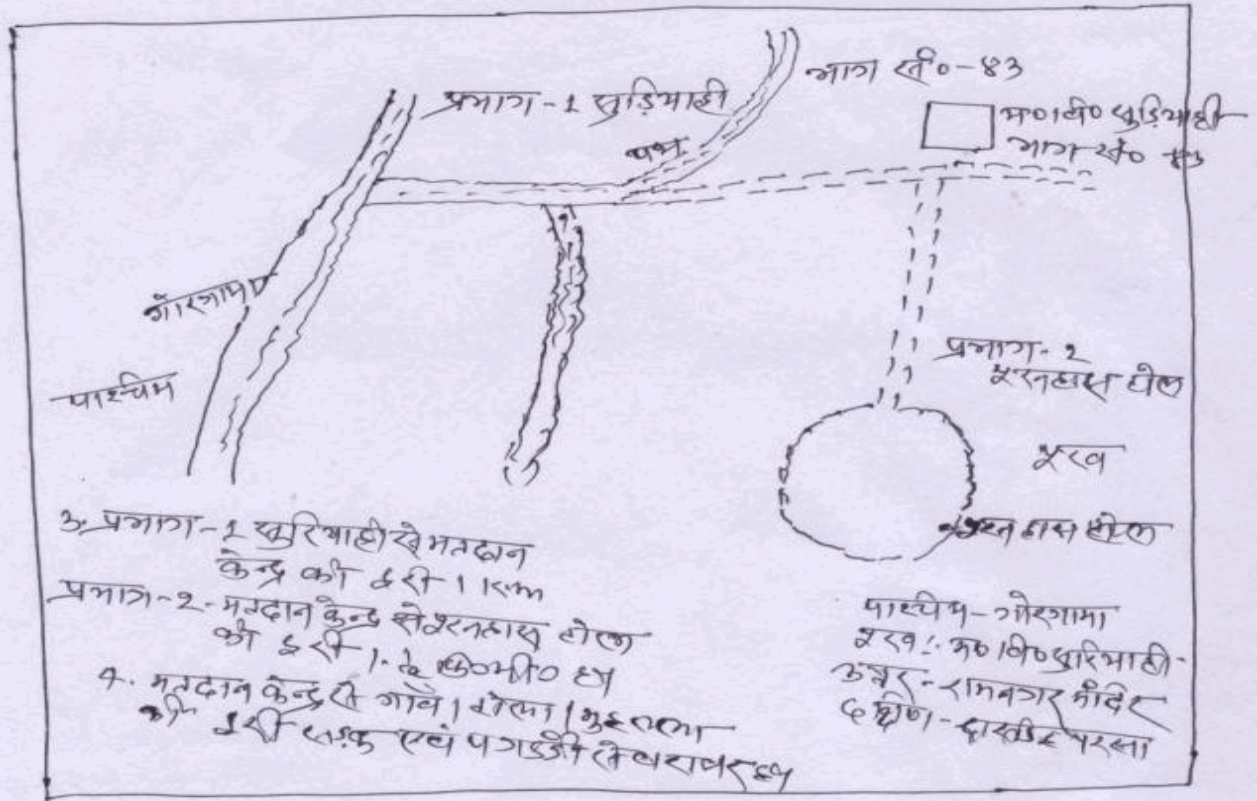 प्रभाग-1 सुड़ियाही
भाग सं०-83
म०वि० सुड़ियाही
भाग सं० 83
पथ
गोरगामा
पाश्चिम
प्रभाग-2
पुरनदास टोल
पुरब
पुरनदास टोल
3. प्रभाग-1 सुरियाही से मतदान
केन्द्र की दुरी 1 km
प्रभाग-2- मतदान केन्द्र से पुरनदास टोल
की दुरी 1. कि०मी० हय
4. मतदान केन्द्र से गाँव। टोला। मुहल्ला
की दुरी सड़क एवं पगडंडी से बराबर हय
पाश्चिम-गोरगामा
पुरब:- म०वि० सुरियाही-
उत्तर-रामनगर मंदिर
दक्षिण-